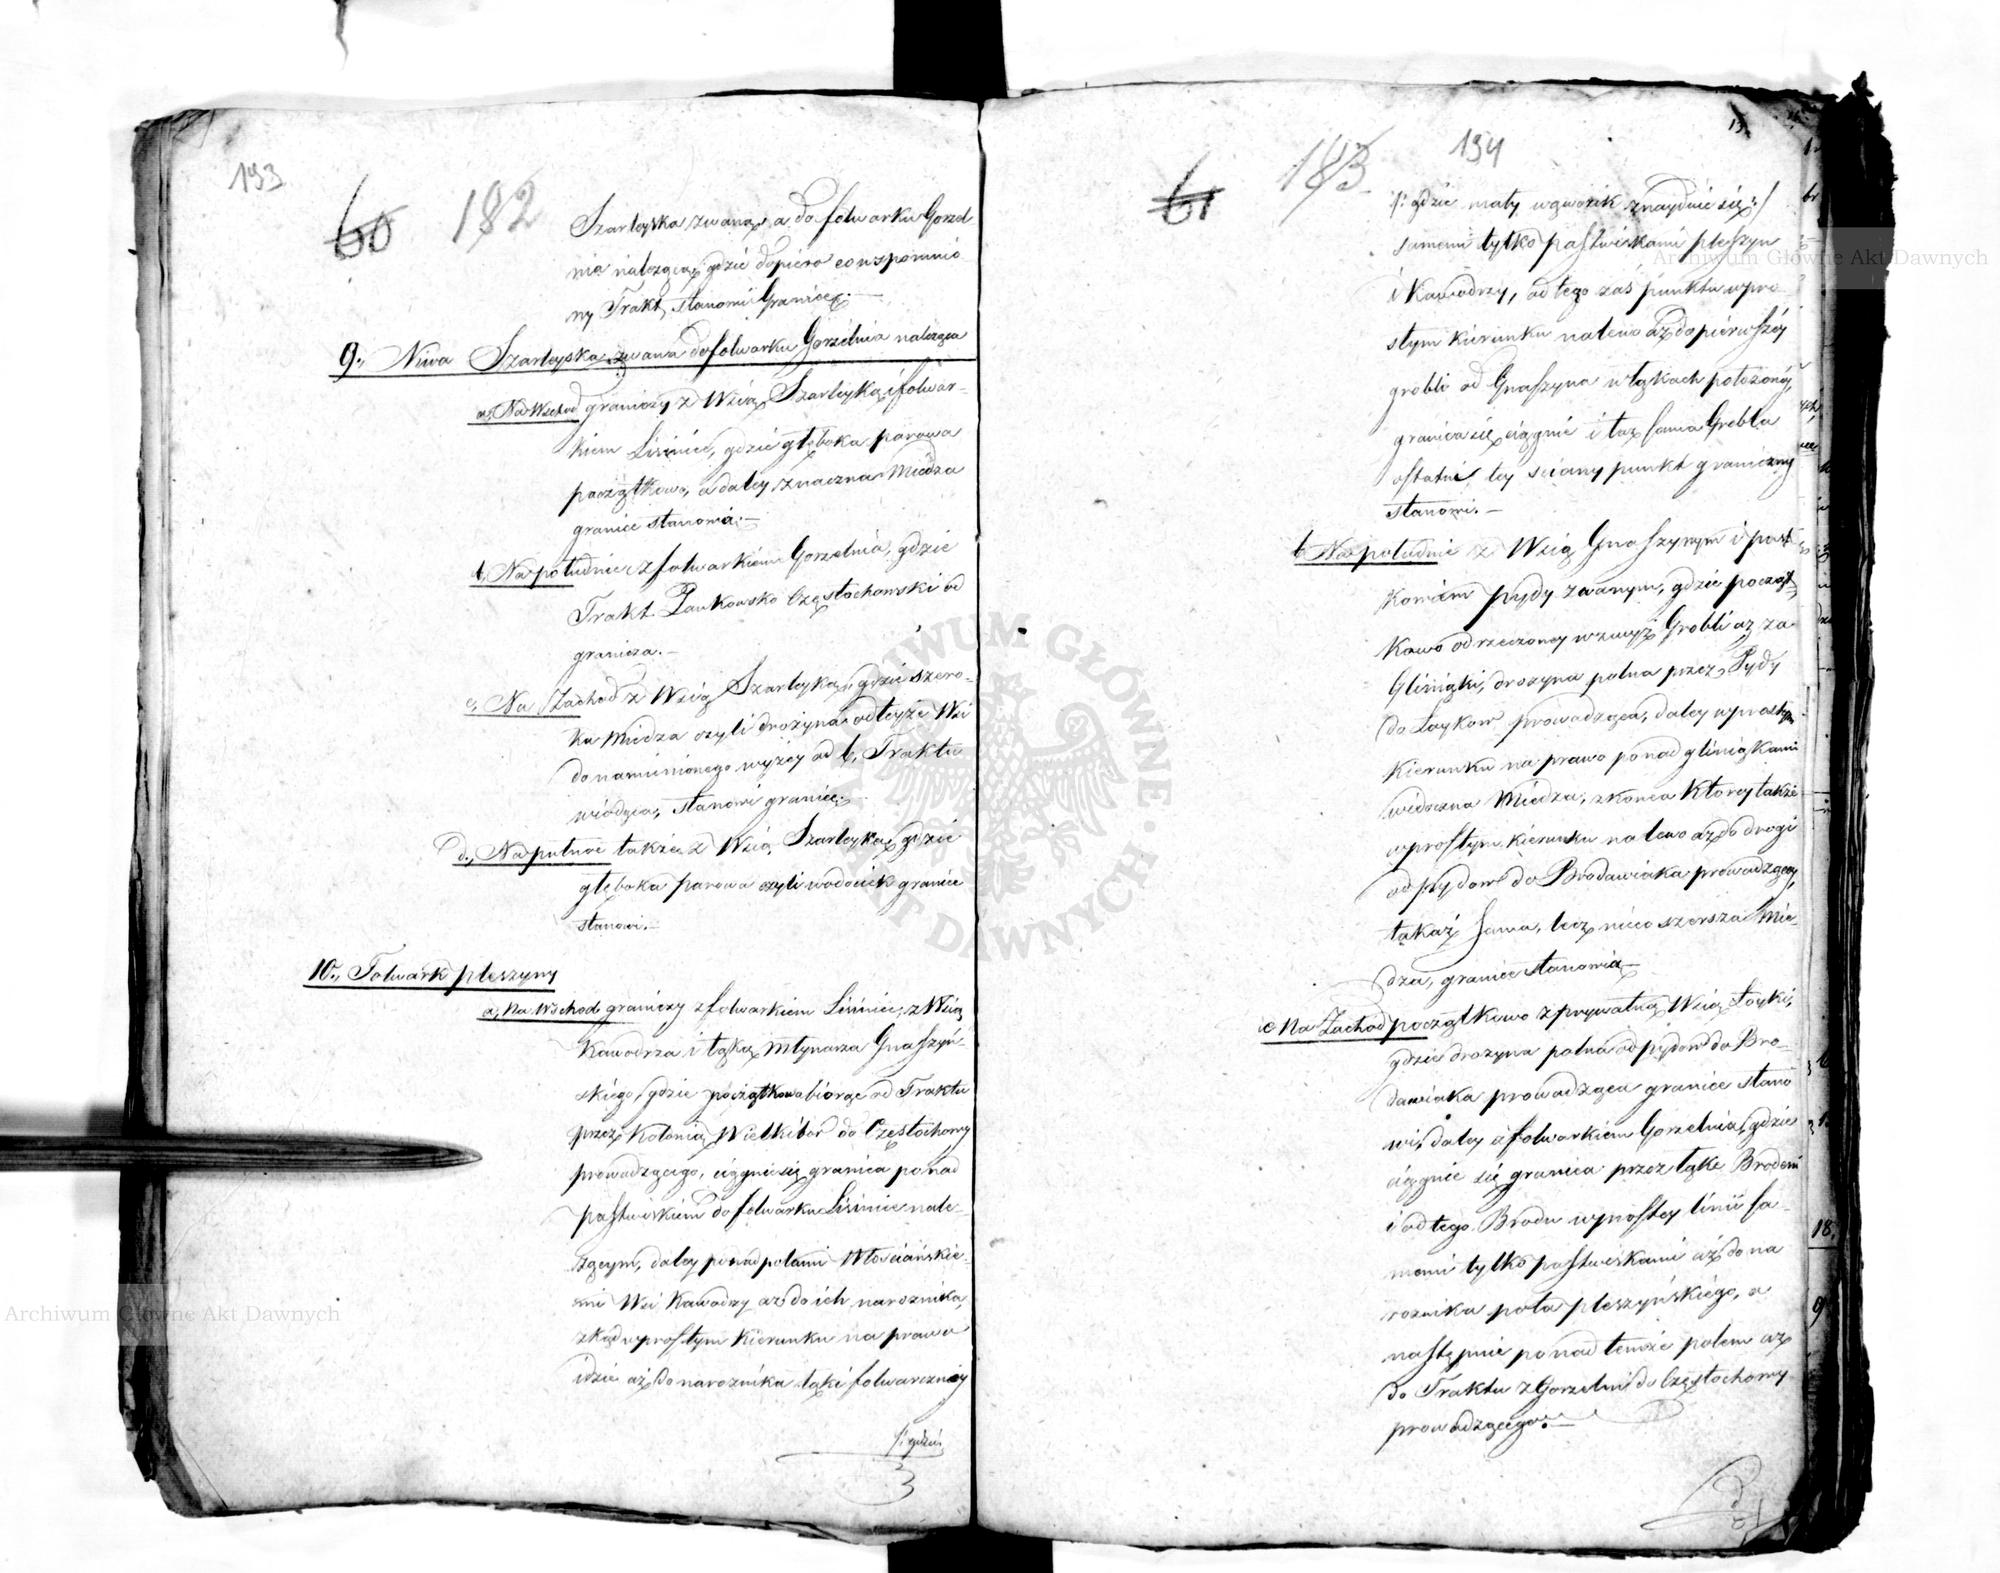 193
60
182
Szarleyska zwaną, a do folwarku Gorzel
nia należącą, gdzie dopiero co wspomnio
ny Trakt, stanowi Granicę.—
9., Niwa Szarleyska zwana do folwarku Gorzelnia należąca
a, Na Wschod graniczy z Wsią Szarleyką i folwar-
kiem Lisiniec, gdzie głęboka parowa
początkowo, a daley znaczna Miedza
granice stanowią.—
b, Na południe z folwarkiem Gorzelnia, gdzie
Trakt Pankowsko Częstochowski od
granicza.—
c, Na Zachod z Wsią Szarleyką, gdzie szero-
ka Miedza czyli drożyna od teyże Wsi
do namienionego wyżey ad b, Traktu
wiodąca, stanowi granicę.—
d., Na pułnoc także z Wsią Szarleyką, gdzie
głęboka parowa czyli wodociek granice
stanowi.—
10., Folwark Pleszyny
a, Na Wschod graniczy z folwarkiem Lisiniec, z Wsią
Kawodrza i łąką Młynarza Gnaszyń-
skiego, gdzie początkowo biorąc od Traktu
przez Kolonią Wielkibor do Częstochowy
prowadzącego, ciągnie się granica ponad
pastwiskiem do folwarku Lisiniec nale-
żącym, daley ponad polami Włościańskie-
mi Wsi Kawodrzy aż do ich narożnika,
zkąd w prostym kierunku na prawo
idzie aż do narożnika łąki folwarczney
/: gdzie
183
194
61
/: gdzie mały wgwozik znayduie się :/
samemi tylko pastwiskami Pleszyn
i Kawodrzy, od tego zaś punktu w pro
stym kierunku na lewo aż do pierwszéy
grobli od Gnaszyna w łąkach położonéy,
granica się ciągnie i taż sama Grobla
ostatni tey sciany punkt graniczny
stanowi.—
b Na południe z Wsią Gnaszynym i pust
kowiem Pydy zwanym, gdzie począt
kowo od rzeczoney wzwyż Grobli aż za
Glinianki, drożyna polna przez Pydy
do Łoykow prowadząca, daley w prostym
kierunku na prawo ponad gliniankami
widoczna Miedza, z konca ktorey także
w prostym kierunku na lewo aż do drogi
od Pydow do Brodawiaka prowadzącey,
takaż sama, lecz nieco szersza Mie-
dza, granice stanowią.—
c Na Zachod początkowo z prywatną Wsią Łoyki,
gdzie drożyna polna od Pydow do Bro-
dawiaka prowadząca granice stano
wi, daley z folwarkiem Gorzelnia, gdzie
ciągnie się granica przez łąkę Brodem
i od tego Brodu w prostey linii sa-
memi tylko pastwiskami aż do na
rożnika pola Pleszyńskiego, a
następnie ponad temże polem aż
do Traktu z Gorzelni do Częstochowy
prowadzącego.—
18.
9
ARCHIWUM GŁÓWNE AKT DAWNYCH
Archiwum Główne Akt Dawnych
Archiwum Główne Akt Dawnych